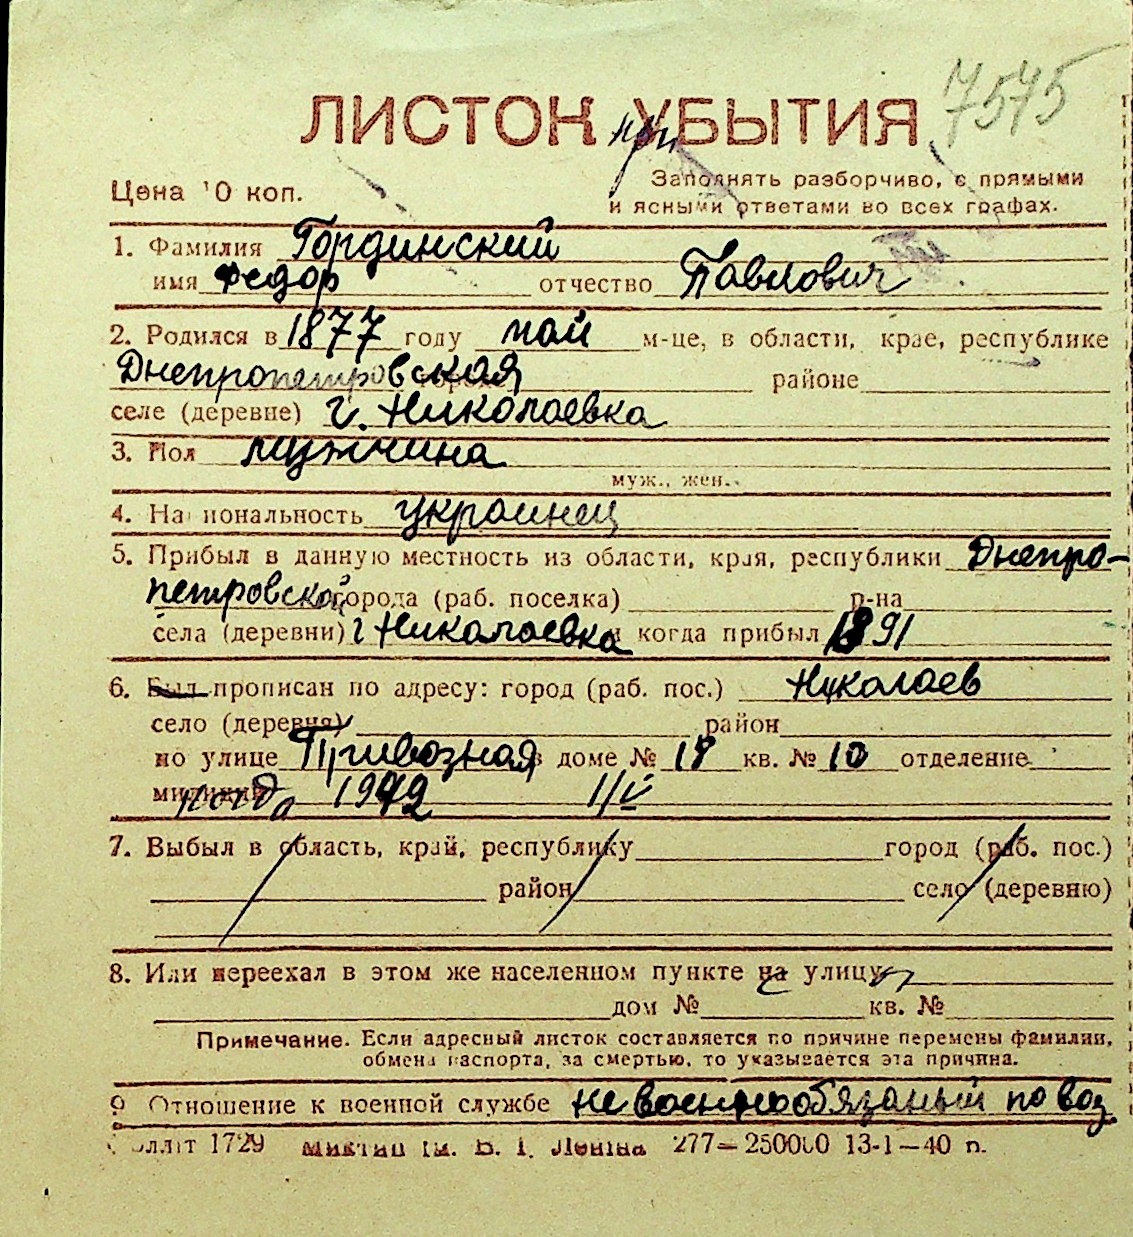 7575
ЛИСТОК УБЫТИЯ
при
Цена 10 коп.
Заполнять разборчиво, с прямыми
и ясными ответами во всех графах.
1. Фамилия Гординский
имя Федор отчество Павлович
2. Родился в 1877 году май м-це, в области, крае, республике
Днепропетровская районе
селе (деревне) г. Николаевка
3. Пол мужчина
муж., жен.
4. Национальность украинец
5. Прибыл в данную местность из области, края, республики Днепро-
петровской города (раб. поселка) р-на
села (деревни) г Николаевка и когда прибыл 1891
6. Был прописан по адресу: город (раб. пос.) Николаев
село (деревня) район
по улице Привозная в доме № 18 кв. № 10 отделение
милиции когда 1942 1/IV
7. Выбыл в область, край, республику город (раб. пос.)
район село (деревню)
8. Или переехал в этом же населенном пункте на улицу
дом № кв. №
Примечание. Если адресный листок составляется по причине перемены фамилии,
обмена паспорта, за смертью, то указывается эта причина.
9 Отношение к военной службе не военнообязаный по воз
1729 Ленина 277—250000 13-1—40 п.